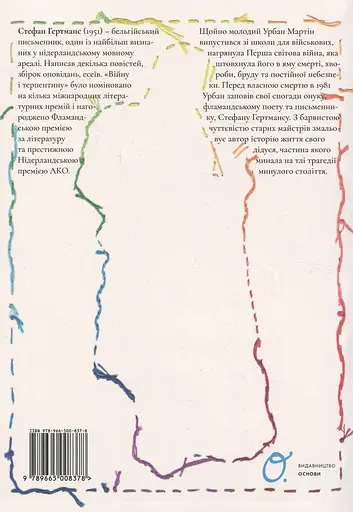 Стефан Гертманс (1951) – бельгійський
письменник, один із найбільш визна-
них у нідерландському мовному
ареалі. Написав декілька повістей,
збірок оповідань, есеїв. «Війну
і терпентину» було номіновано
на кілька міжнародних літера-
турних премій і наго-
роджено Фламанд-
ською премією
за літературу
та престижною
Нідерландською
премією АКО.
Щойно молодий Урбан Мартін
випустився зі школи для військових,
нагрянула Перша світова війна, яка
штовхнула його в яму смерті, хво-
роби, бруду та постійної небезпе-
ки. Перед власною смертю в 1981
Урбан заповів свої спогади онуку,
фламандському поету та письменни-
ку, Стефану Гертмансу. З барвистою
чуттєвістю старих майстрів змальо-
вує автор історію життя свого
дідуся, частина якого
минала на тлі трагедії
минулого століття.
ISBN 978-966-500-837-8
9 789665 008378
О.
ВИДАВНИЦТВО
ОСНОВИ